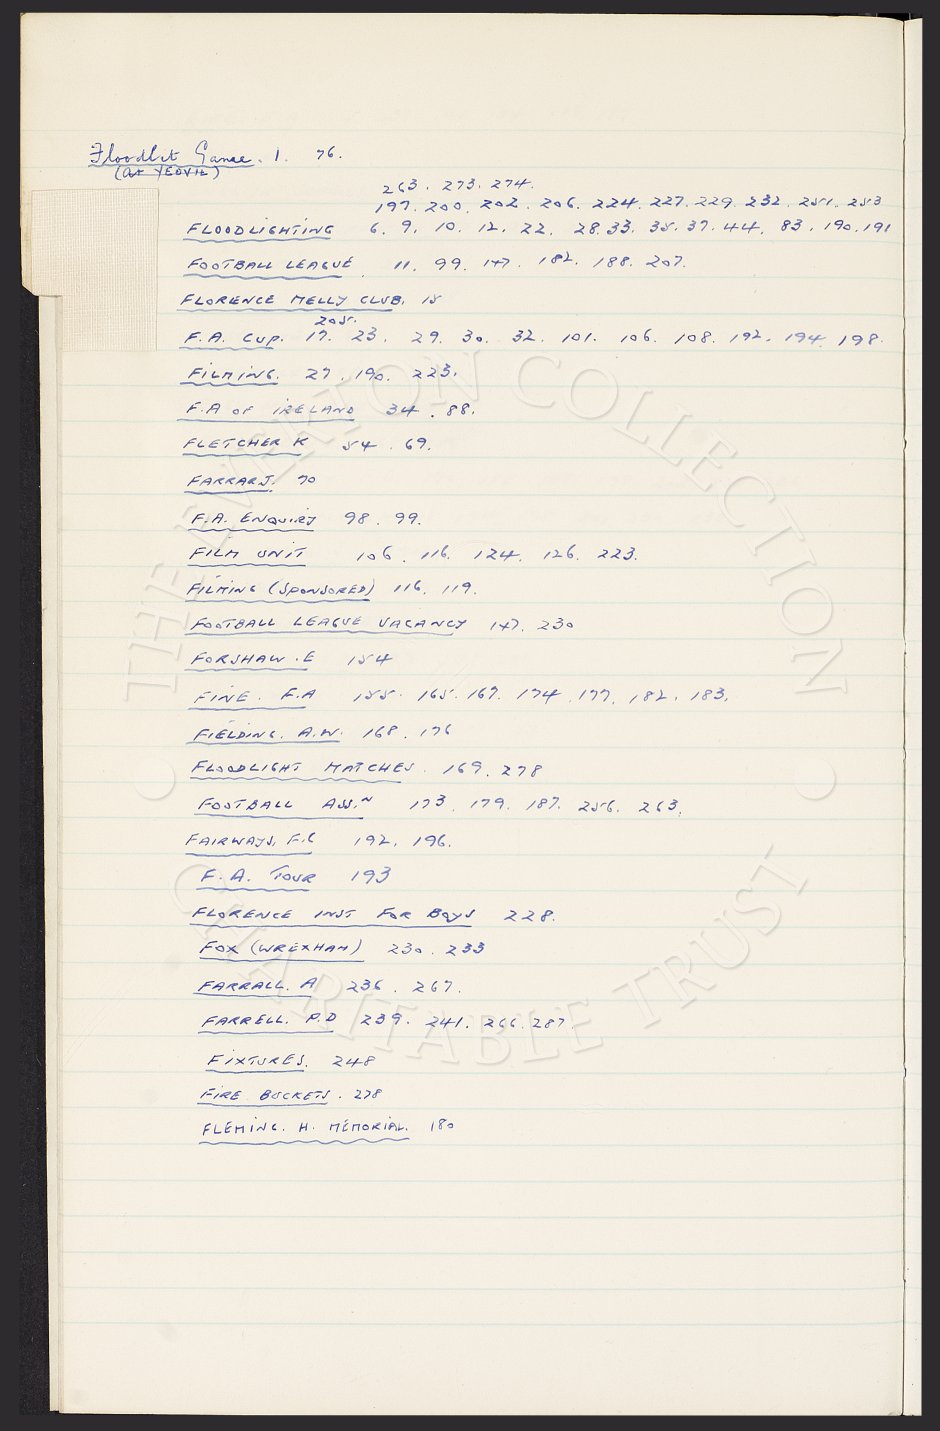 Floodlit Game. 1. 76.
(at YEOVIL)
263. 273. 274.
197. 200. 202. 206. 224. 227. 229. 232. 251. 253
FLOODLIGHTING 6. 9. 10. 12. 22. 28. 33. 35. 37. 44. 83. 190. 191
FOOTBALL LEAGUE. 11. 99. 147. 182. 188. 207.
FLORENCE MELLY CLUB. 15
205.
F.A. CUP. 17. 23. 29. 30. 32. 101. 106. 108. 192. 194. 198.
FILMING. 27. 190. 223.
F.A OF IRELAND 34. 88.
FLETCHER K 54. 69.
FARRAR J. 70
F.A. ENQUIRY 98. 99.
FILM UNIT 106. 116. 124. 126. 223.
FILMING (SPONSORED) 116. 119.
FOOTBALL LEAGUE VACANCY 147. 230
FORSHAW. E 154
FINE. F.A 155. 165. 167. 174. 177. 182. 183.
FIELDING. A.W. 168. 176
FLOODLIGHT MATCHES. 169. 278
FOOTBALL ASS.N 173. 179. 187. 256. 263.
FAIRWAYS. F.C 192. 196.
F.A. TOUR 193
FLORENCE INST FOR BOYS 228.
FOX (WREXHAM) 230. 233
FARRALL. A 236. 267.
FARRELL. P.D 239. 241. 266. 287.
FIXTURES. 248
FIRE BUCKETS. 278
FLEMING. H. MEMORIAL. 180
THE EVERTON COLLECTION
CHARITABLE TRUST